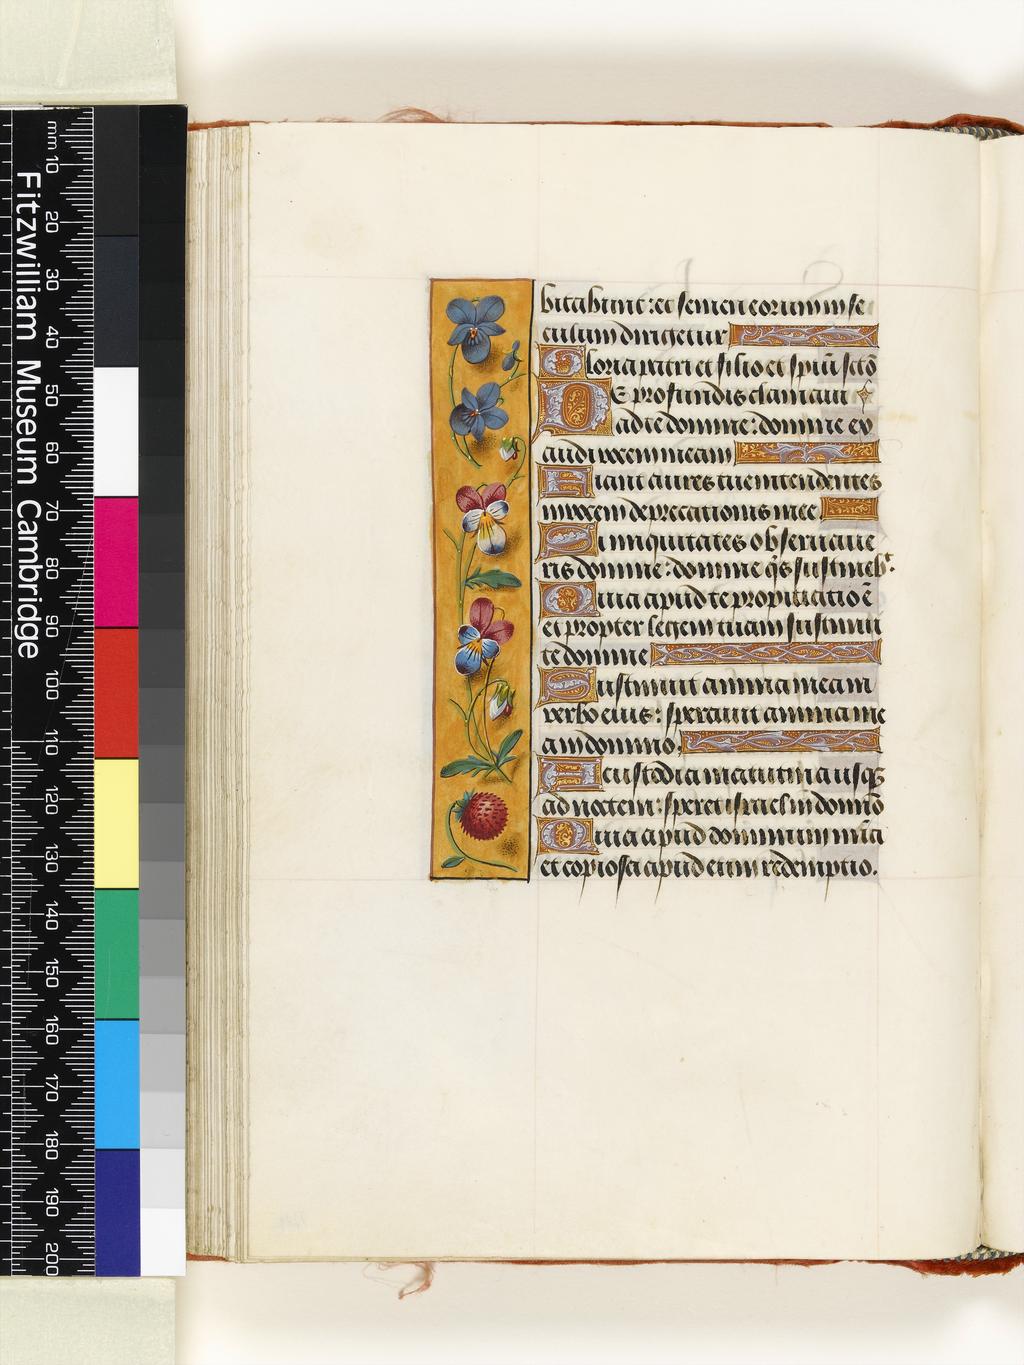 Fitzwilliam Museum Cambridge
mm 10 20 30 40 50 60 70 80 90 100 110 120 130 140 150 160 170 180 190 200
bitabunt: et semen eorum in se
culum dirigetur
Gloria patri et filio et spiū sctō
De profundis clamaui
ad te domine: domine ex
audi uocem meam
Fiant aures tue intendentes
in uocem deprecationis mee
Si iniquitates obseruaue
ris domine: domine q̄s sustinebᵗ.
Quia apud te propiciatio ē
et propter legem tuam sustinui
te domine
Sustinuit anima mea in
uerbo eius: sperauit anima me
a in domino.
A custodia matutina usqꝫ
ad noctem: speret israel in domnō
Quia apud dominum mīa
et copiosa apud eum redemptio.